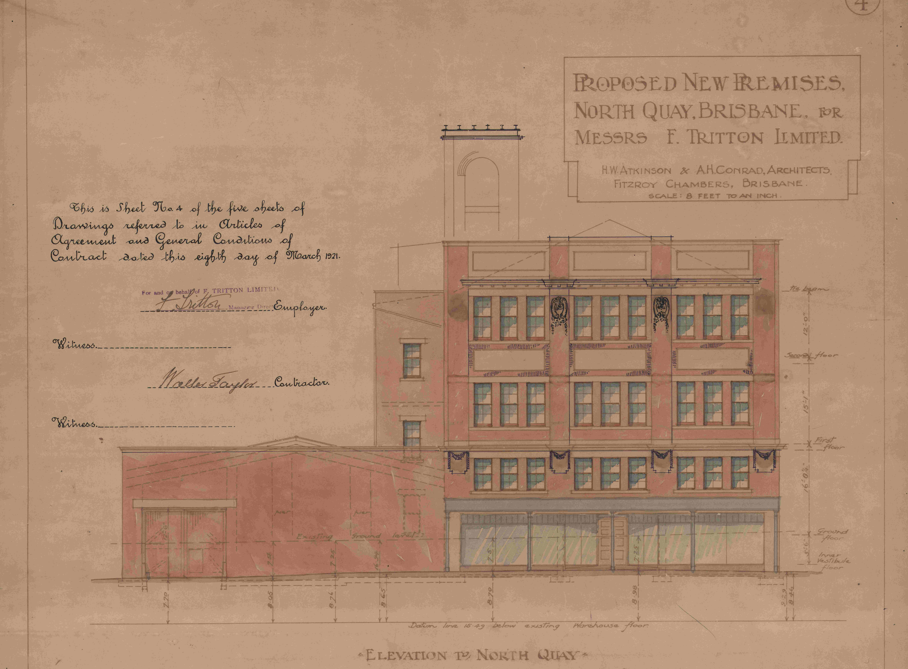 4
PROPOSED NEW PREMISES,
NORTH QUAY, BRISBANE, FOR
MESSRS F. TRITTON LIMITED.
H.W. ATKINSON & A.H. CONRAD, ARCHITECTS,
FITZROY CHAMBERS, BRISBANE.
SCALE: 8 FEET TO AN INCH.
This is Sheet No. 4 of the five sheets of
Drawings referred to in Articles of
Agreement and General Conditions of
Contract dated this eighth day of March 1921.
For and on behalf of F. TRITTON LIMITED,
F Tritton Employer.
Witness
Walter Taylor Contractor.
Witness
Second floor
12'-0"
First floor
Ground floor
Existing Ground
floor
Datum line below existing Warehouse floor
ELEVATION TO NORTH QUAY